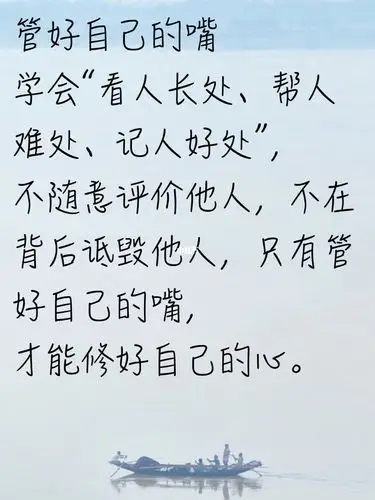 管好自己的嘴
学会“看人长处、帮人
难处、记人好处”,
不随意评价他人，不在
背后诋毁他人，只有管
好自己的嘴,
才能修好自己的心。